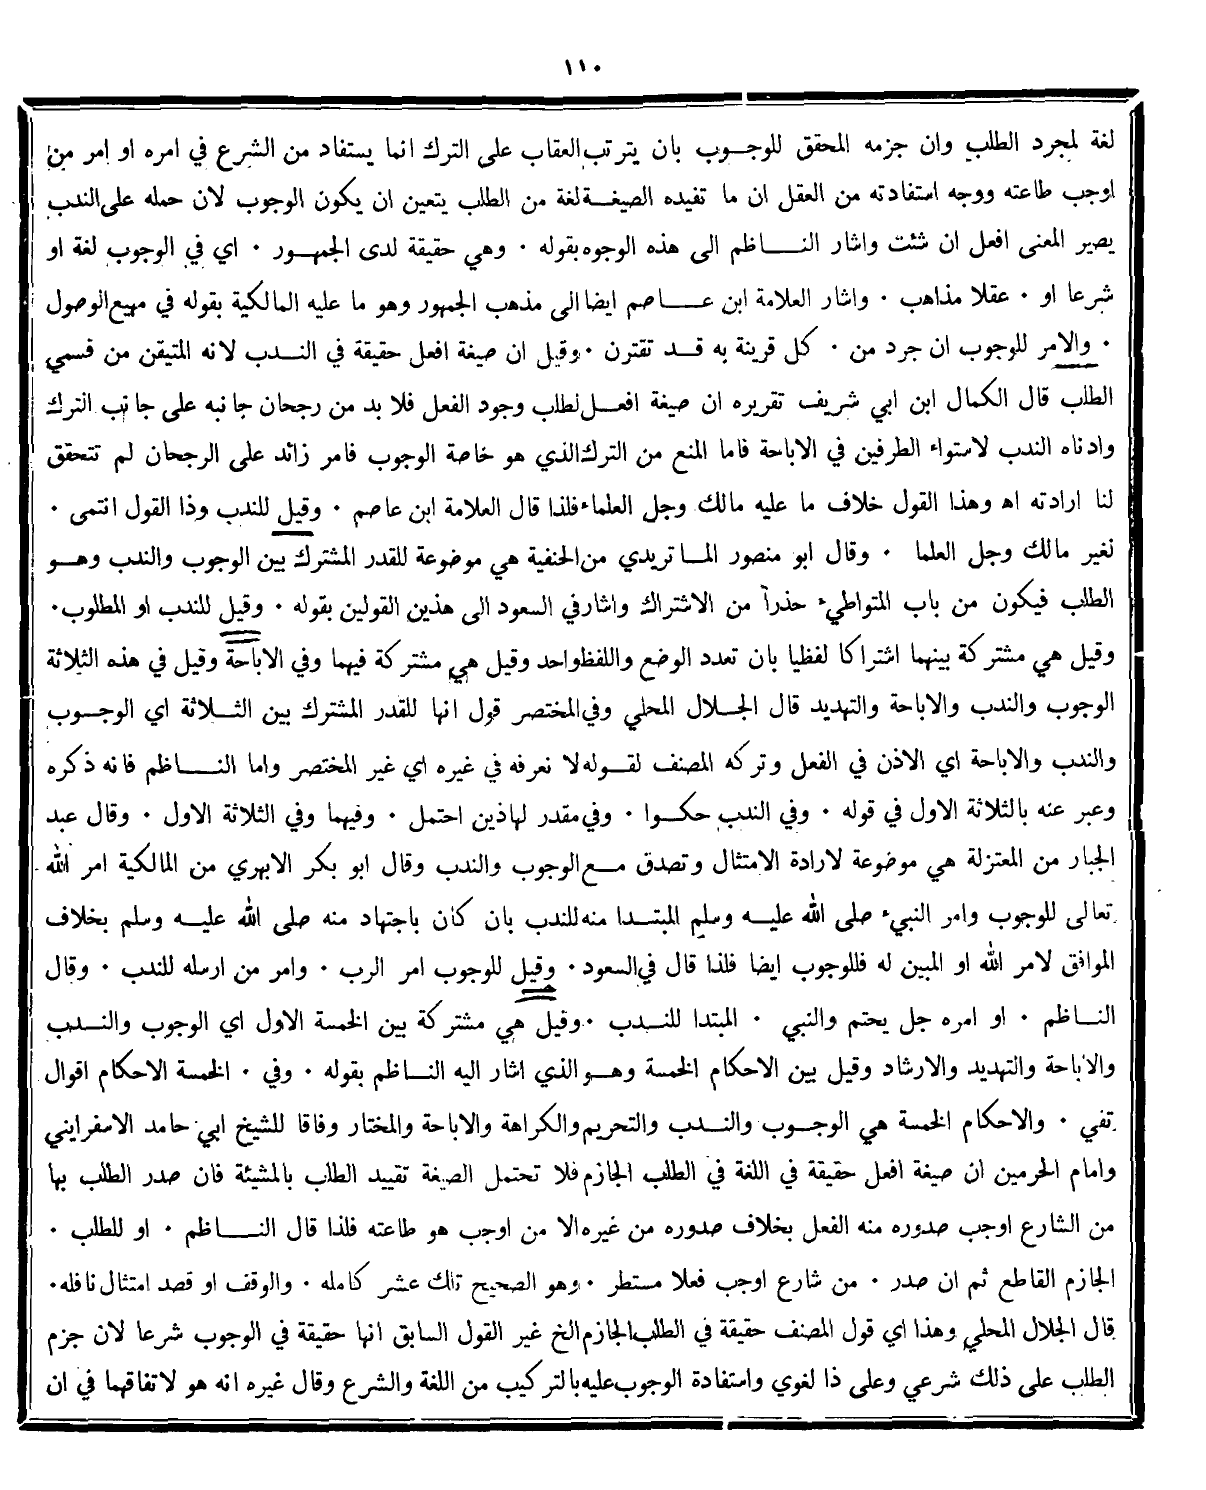 ١١٠
لغة لمجرد الطلب وان جزمه المحقق للوجوب بان يترتب العقاب على الترك انما يستفاد من الشرع في امره او امر من
اوجب طاعته ووجه استفادته من العقل ان ما تفيده الصيغة لغة من الطلب يتعين ان يكون الوجوب لان حمله على الندب
يصير المعنى افعل ان شئت واشار الناظم الى هذه الوجوه بقوله ٠ وهي حقيقة لدى الجمهور ٠ اي في الوجوب لغة او
شرعا او ٠ عقلا مذاهب ٠ واشار العلامة ابن عاصم ايضا الى مذهب الجمهور وهو ما عليه المالكية بقوله في مهيع الوصول
٠ والامر للوجوب ان جرد من ٠ كل قرينة به قد تقترن ٠ وقيل ان صيغة افعل حقيقة في الندب لانه المتيقن من قسمي
الطلب قال الكمال ابن ابي شريف تقريره ان صيغة افعل لطلب وجود الفعل فلا بد من رجحان جانبه على جانب الترك
وادناه الندب لاستواء الطرفين في الاباحة فاما المنع من الترك الذي هو خاصة الوجوب فامر زائد على الرجحان لم تتحقق
لنا ارادته اه وهذا القول خلاف ما عليه مالك وجل العلماء فلذا قال العلامة ابن عاصم ٠ وقيل للندب وذا القول انتمى ٠
لغير مالك وجل العلما ٠ وقال ابو منصور الماتريدي من الحنفية هي موضوعة للقدر المشترك بين الوجوب والندب وهو
الطلب فيكون من باب المتواطيء حذرا من الاشتراك واشار في السعود الى هذين القولين بقوله ٠ وقيل للندب او المطلوب ٠
وقيل هي مشتركة بينهما اشتراكا لفظيا بان تعدد الوضع واللفظ واحد وقيل هي مشتركة فيهما وفي الاباحة وقيل في هذه الثلاثة
الوجوب والندب والاباحة والتهديد قال الجلال المحلي وفي المختصر قول انها للقدر المشترك بين الثلاثة اي الوجوب
والندب والاباحة اي الاذن في الفعل وتركه المصنف لقوله لا نعرفه في غيره اي غير المختصر واما الناظم فانه ذكره
وعبر عنه بالثلاثة الاول في قوله ٠ وفي الندب حكوا ٠ وفي مقدر لهاذين احتمل ٠ وفيهما وفي الثلاثة الاول ٠ وقال عبد
الجبار من المعتزلة هي موضوعة لارادة الامتثال وتصدق مع الوجوب والندب وقال ابو بكر الابهري من المالكية امر الله
تعالى للوجوب وامر النبيء صلى الله عليه وسلم المبتدا منه للندب بان كان باجتهاد منه صلى الله عليه وسلم بخلاف
الموافق لامر الله او المبين له فللوجوب ايضا فلذا قال في السعود ٠ وقيل للوجوب امر الرب ٠ وامر من ارسله للندب ٠ وقال
الناظم ٠ او امره جل يحتم والنبي ٠ المبتدا للندب ٠ وقيل هي مشتركة بين الخمسة الاول اي الوجوب والندب
والاباحة والتهديد والارشاد وقيل بين الاحكام الخمسة وهو الذي اشار اليه الناظم بقوله ٠ وفي ٠ الخمسة الاحكام اقوال
تفي ٠ والاحكام الخمسة هي الوجوب والندب والتحريم والكراهة والاباحة والمختار وفاقا للشيخ ابي حامد الاسفرايني
وامام الحرمين ان صيغة افعل حقيقة في اللغة في الطلب الجازم فلا تحتمل الصيغة تقييد الطلب بالمشيئة فان صدر الطلب بها
من الشارع اوجب صدوره منه الفعل بخلاف صدوره من غيره الا من اوجب هو طاعته فلذا قال الناظم ٠ او للطلب ٠
الجازم القاطع ثم ان صدر ٠ من شارع اوجب فعلا مستطر ٠ وهو الصحيح تلك عشر كامله ٠ والوقف او قصد امتثال نافله ٠
قال الجلال المحلي وهذا اي قول المصنف حقيقة في الطلب الجازم الخ غير القول السابق انها حقيقة في الوجوب شرعا لان جزم
الطلب على ذلك شرعي وعلى ذا لغوي واستفادة الوجوب عليه بالتركيب من اللغة والشرع وقال غيره انه هو لاتفاقهما في ان